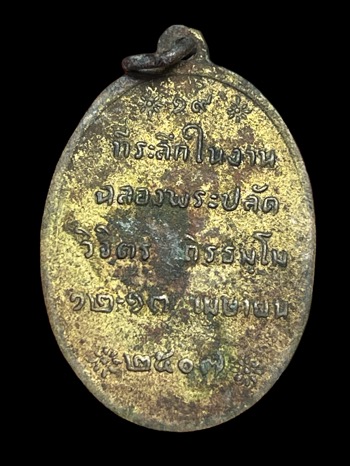 ๑๙
ที่ระลึกในงาน
ฉลองพระปลัด
วิจิตร ถิรธมฺโม
๑๒-๑๓ เมษายน
๒๕๐๗